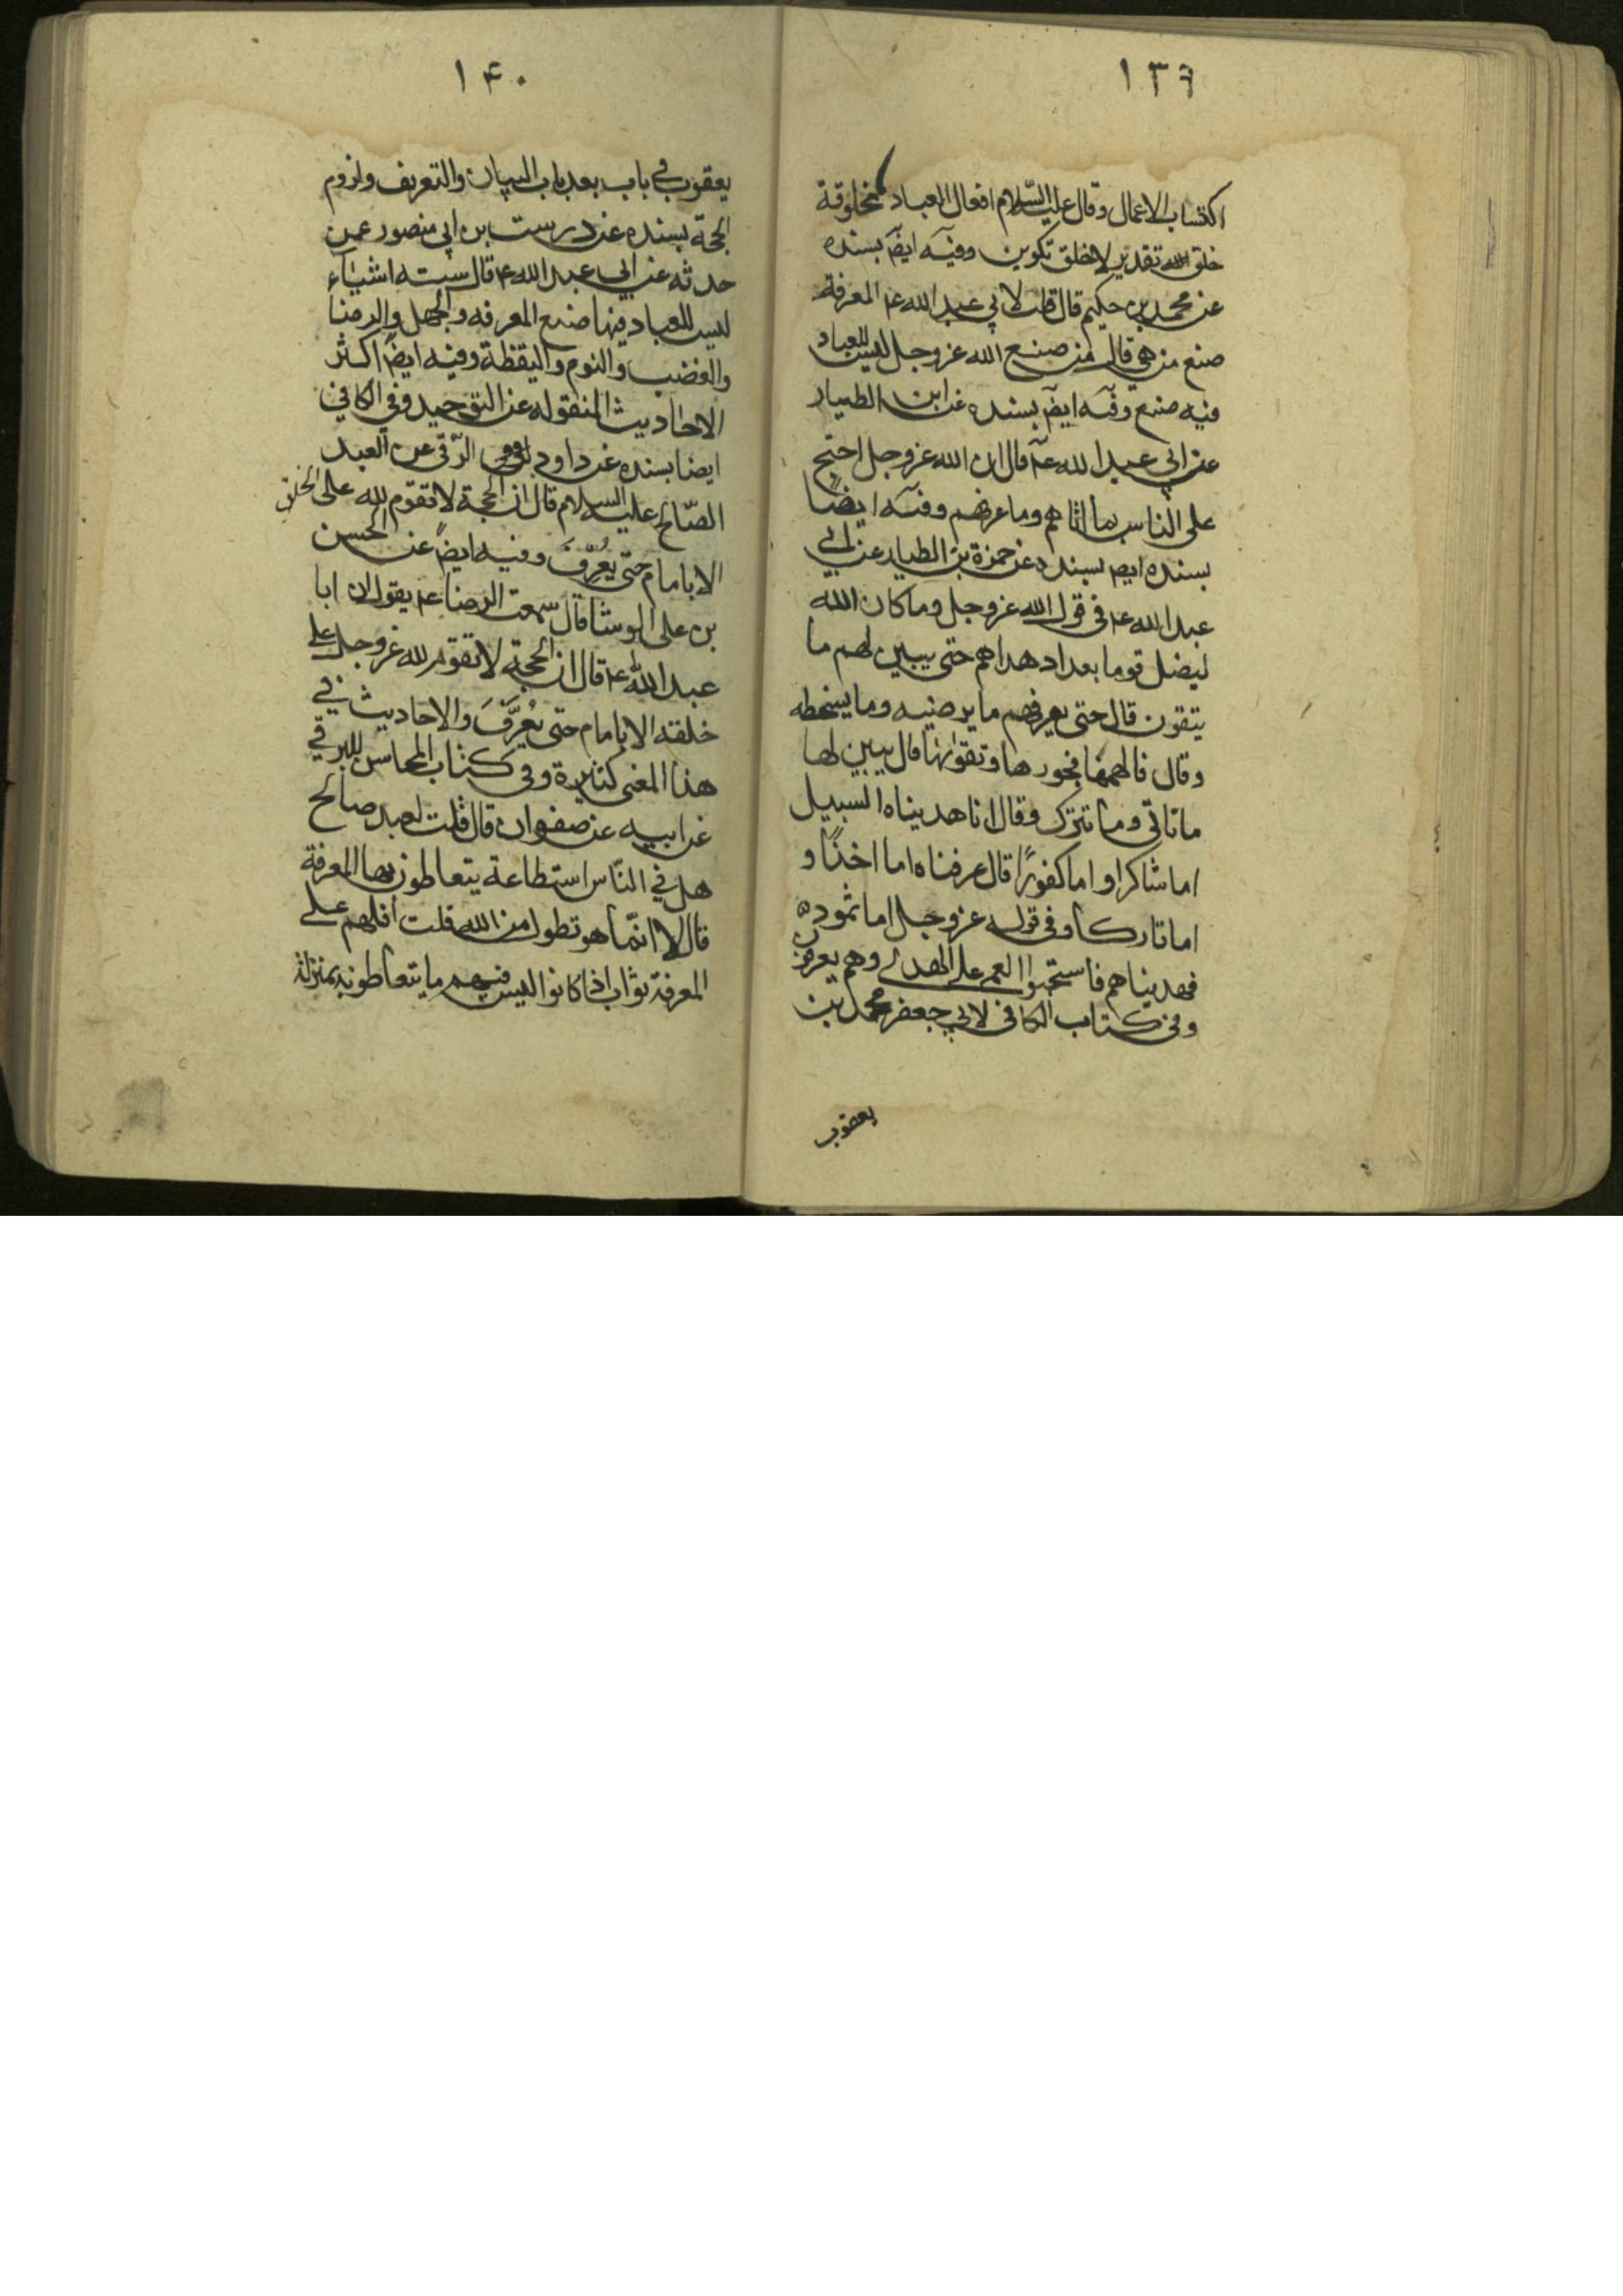 ١٣٩
اكتساب الاعمال وقال عليه السّلام افعال العباد مخلوقة
خلق الله تقدير لا خلق تكوين وفيه ايضَ بسنده
عن محمد بن حكيم قال قلت لابي عبد الله ع المعرفة
صنع من هي قال من صنع الله عز وجل ليس للعباد
فيه صنع وفيه ايضَ بسنده عن ابن الطيار
عن ابي عبد الله ع قال ان الله عز وجل احتج
على الناس بما اتاهم وما عرفهم وفيه ايضًا
بسنده ايضَ بسنده عن حمزة بن الطيار عن ابي
عبد الله ع في قول الله عز وجل وما كان الله
ليضل قوما بعد اذ هداهم حتى يبين لهم ما
يتقون قال حتى يعرفهم ما يرضيه وما يسخطه
وقال فالهمها فجورها وتقواها قال يبين لها
ما تاتي وما تترك وقال انا هديناه السبيل
اما شاكرا واما كفورًا قال عرفناه اما اخذًا و
اما تاركًا وفي قوله عز وجل اما ثمود
فهديناهم فاستحبوا العمى على الهدى وهم يعرفون
وفي كتاب الكافي لابي جعفر محمد بن
يعقوب
١۴٠
يعقوب في باب بعد باب البيان والتعريف ولزوم
الحجة بسنده عن درست بن ابي منصور عمن
حدثه عن ابي عبد الله ع قال ستة اشياء
ليس للعباد فيها صنع المعرفه والجهل والرضا
والغضب والنوم واليقظة وفيه ايضًا اكثر
الاحاديث المنقوله عن التوحيد وفي الكافي
ايضا بسنده عن داود الرّقي عن العبد
الصّالح عليه السلام قال ان الحجة لا تقوم لله على الخلق
الا بامام حتى يُعرّفَ وفيه ايضً عن الحسن
بن على الوشا قال سمعت الرضا ع يقول ان ابا
عبد الله ع قال ان الحجة لا تقوم لله عز وجل على
خلقه الا بامام حتى يُعرَّفَ والاحاديث في
هذا المعنى كثيرة وفي كتاب المحاسن للبرقي
عن ابيه عن صفوان قال قلت لعبد صالح
هل في النّاس استطاعة يتعاطون بها المعرفة
قال لا انّما هو تطول من الله قلت أفلهم على
المعرفة ثواب اذا كانوا ليس فيهم ما يتعاطونه بمنزلة